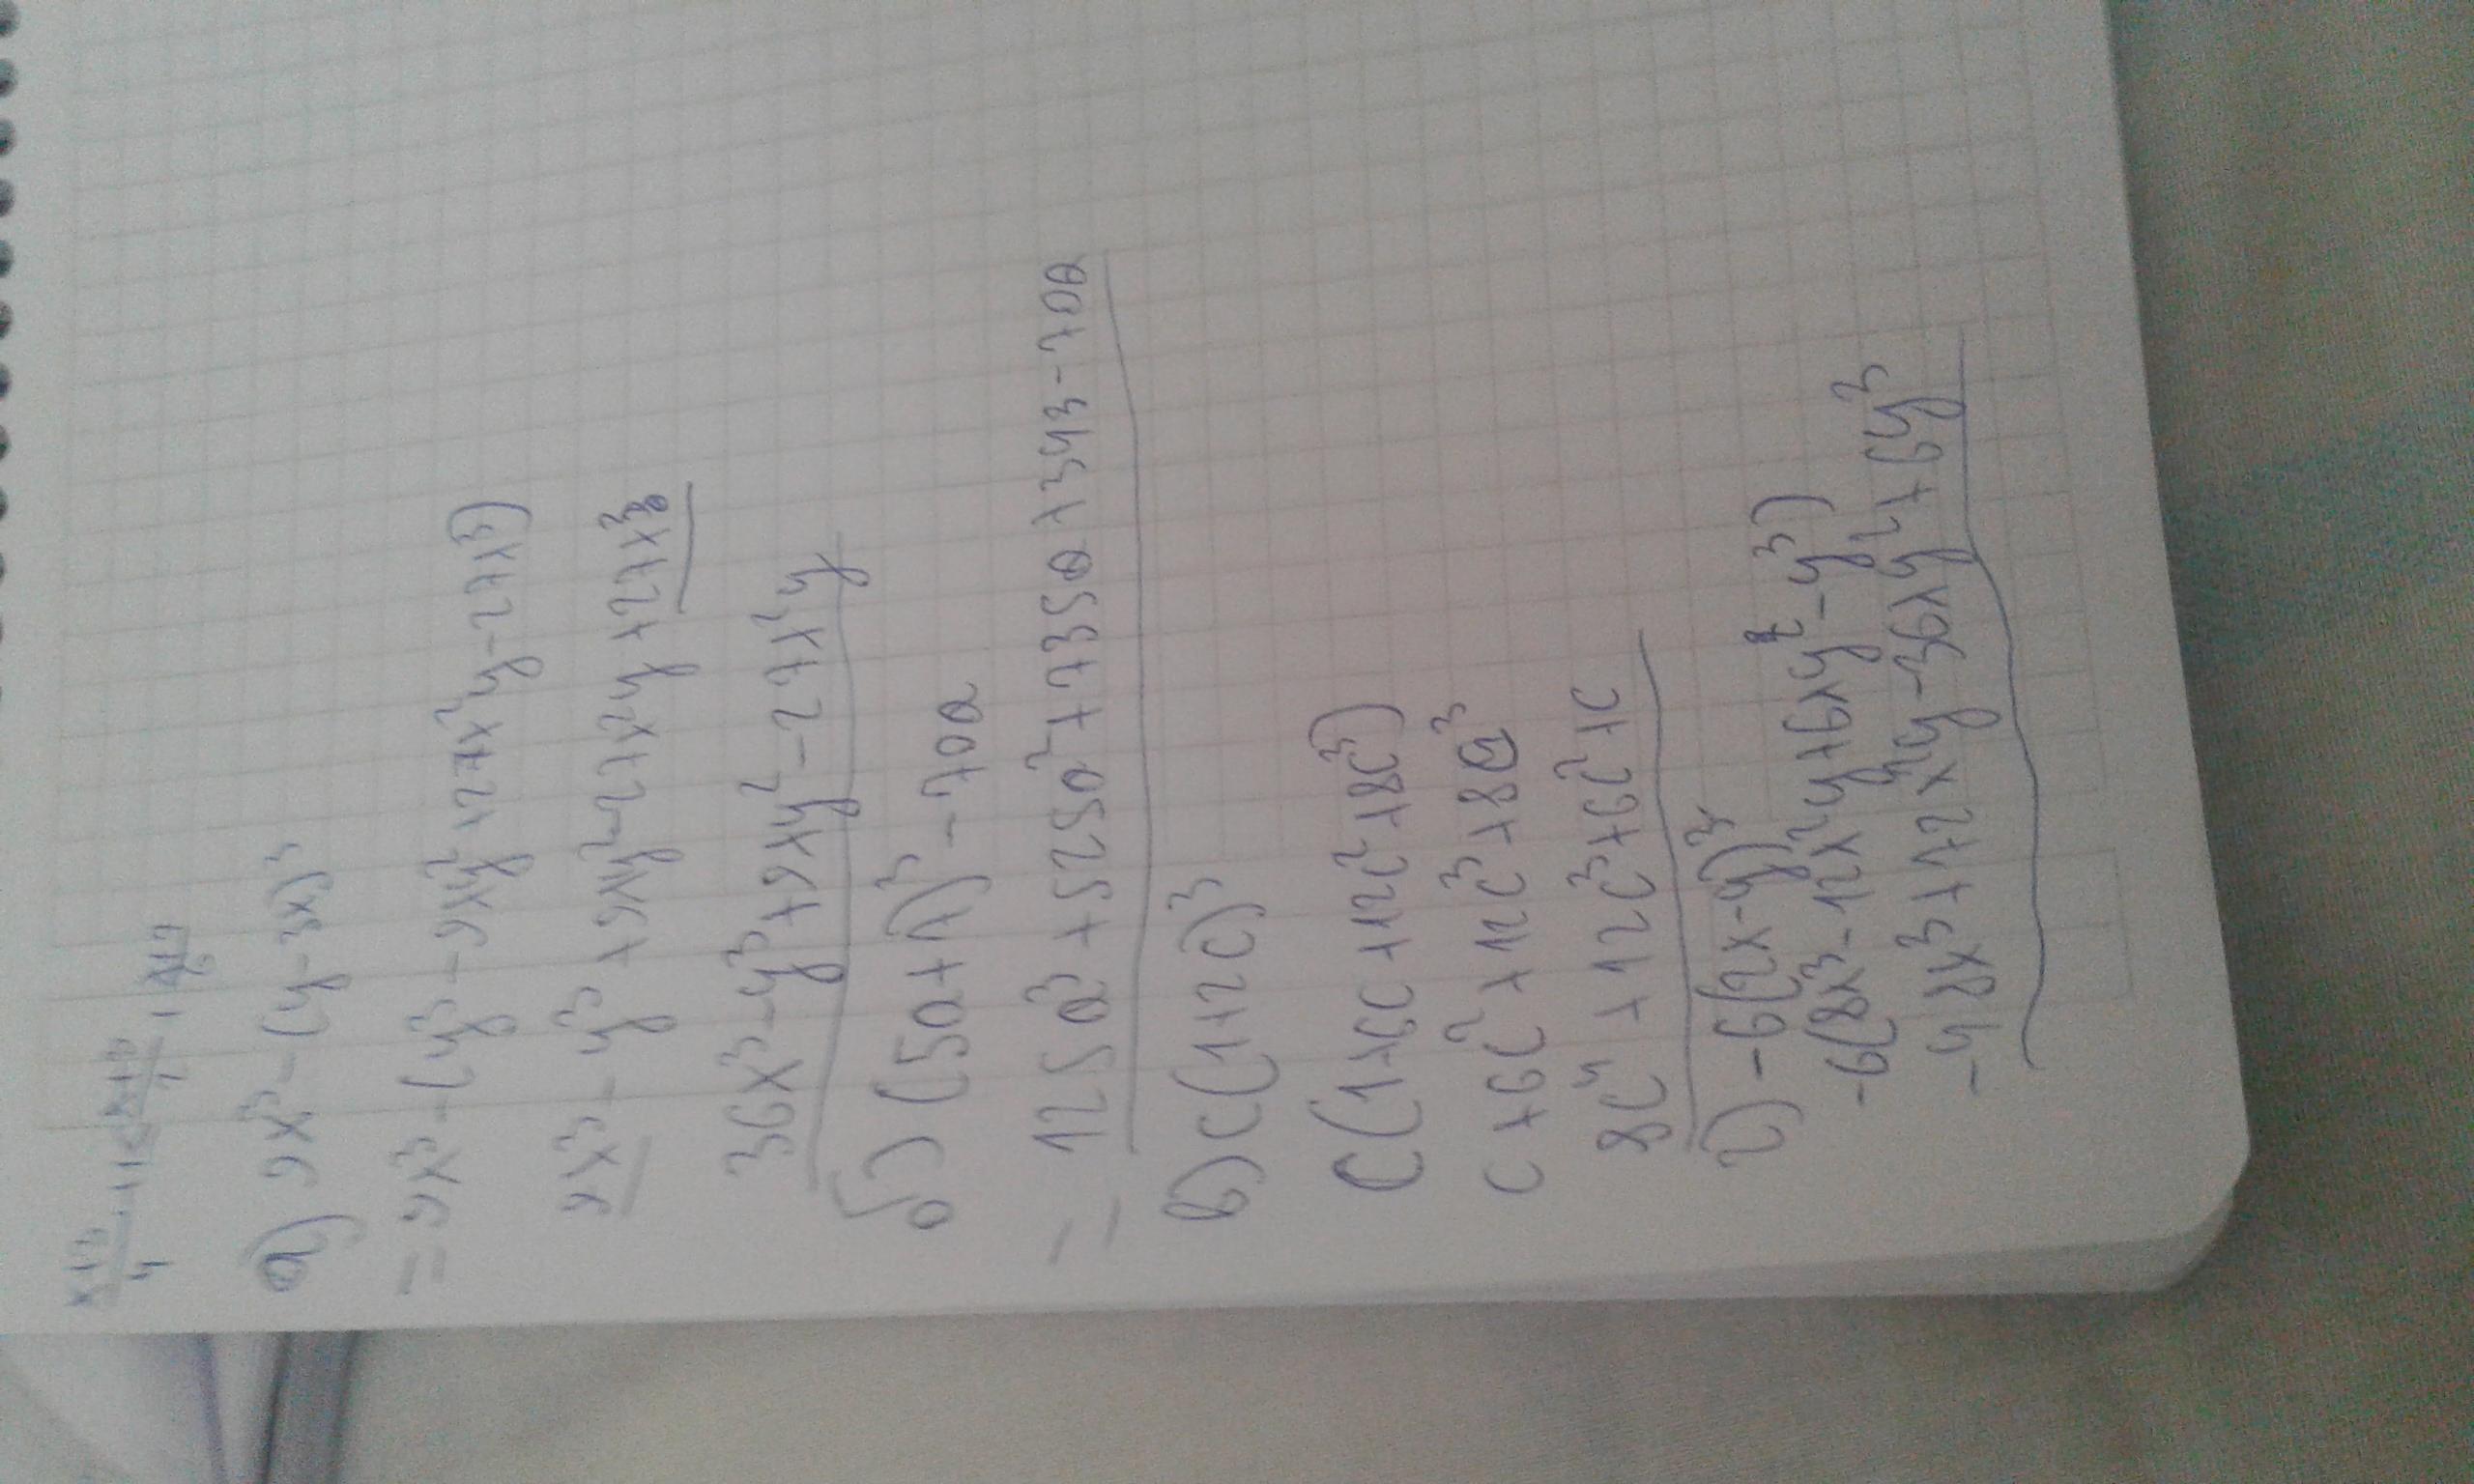 а) 9x³-(y-3x)³
=9x³-(y³-9xy²+27x²y-27x³)
9x³-y³+9xy²-27x²y+27x³
36x³-y³+9xy²-27x²y
б) (5a+7)³-70a
= 125a³+525a²+735a+343-70a
в) c(1+2c)³
c(1+6c+12c²+8c³)
c+6c²+12c³+8c³
8c⁴+12c³+6c²+c
г) -6(2x-y)³
-6(8x³-12x²y+6xy²-y³)
-48x³+72x²y-36xy²+6y³